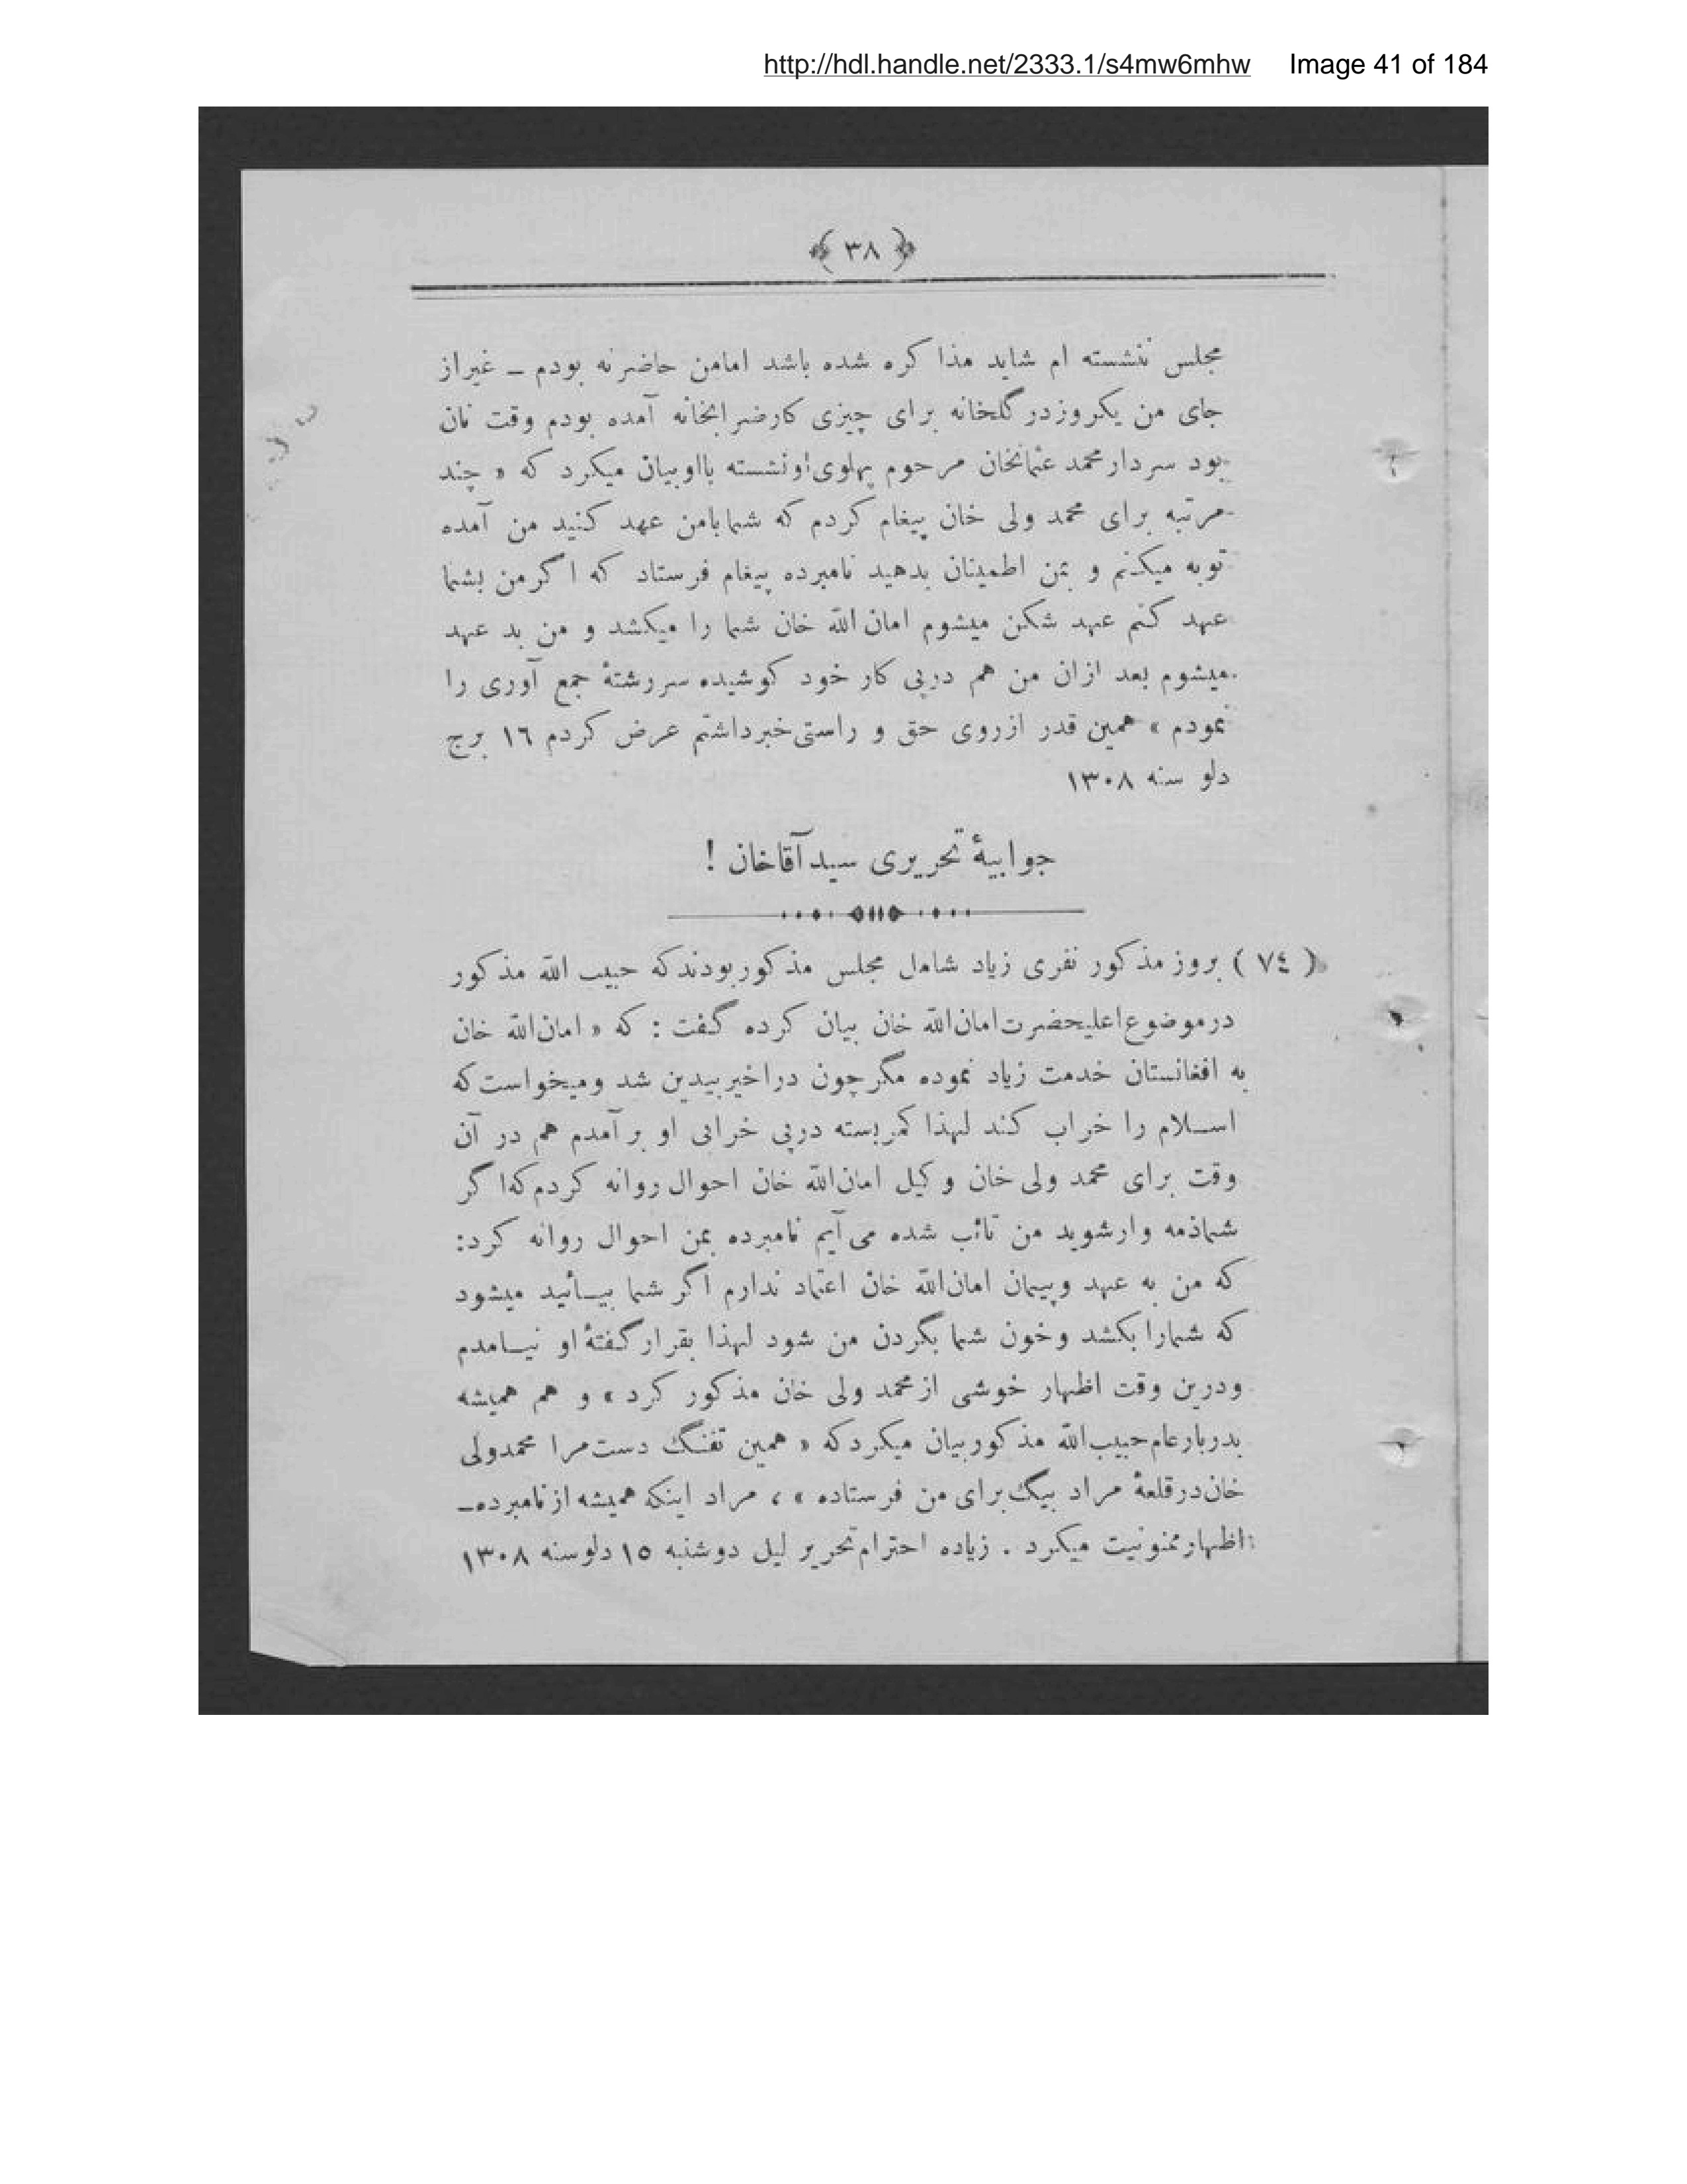 http://hdl.handle.net/2333.1/s4mw6mhw Image 41 of 184
﴿ ٣٨ ﴾
مجلس ننشسته ام شاید مذا کره شده باشد امامن حاضر نه بودم ـ غیر از
جای من یکروز در گلخانه برای چیزی کار ضرابخانه آمده بودم وقت نان
بود سردار محمد عثمانخان مرحوم پهلوی او نشسته بااو بیان میکرد که « چند
مرتبه برای محمد ولی خان پیغام کردم که شما بامن عهد کنید من آمده
توبه میکنم و بمن اطمینان بدهید نامبرده پیغام فرستاد که اگر من بشما
عهد کنم عهد شکن میشوم امان الله خان شما را میکشد و من بد عهد
میشوم بعد ازان من هم درپی کار خود کوشیده سررشتۀ جمع آوری را
نمودم » همین قدر از روی حق و راستی خبر داشتم عرض کردم ١٦ برج
دلو سنه ١٣٠٨
جوابیۀ تحریری سید آقاخان !
( ٧٤ ) بروز مذکور نفری زیاد شامل مجلس مذکور بودند که حبیب الله مذکور
در موضوع اعلیحضرت امان الله خان بیان کرده گفت : که « امان الله خان
به افغانستان خدمت زیاد نموده مگر چون در اخیر بیدین شد و میخواست که
اسـلام را خراب کند لهذا کمر بسته درپی خرابی او بر آمدم هم در آن
وقت برای محمد ولی خان وکیل امان الله خان احوال روانه کردم که اگر
شما ذمه وار شوید من تائب شده می آیم نامبرده بمن احوال روانه کرد:
که من به عهد و پیمان امان الله خان اعتماد ندارم اگر شما بیـائید میشود
که شمارا بکشد و خون شما بگردن من شود لهذا بقرار گفتۀ او نیـامدم
ودرین وقت اظهار خوشی از محمد ولی خان مذکور کرد » و هم همیشه
بدربار عام حبیب الله مذکور بیان میکرد که « همین تفنگ دست مرا محمدولی
خان در قلعۀ مراد بیگ برای من فرستاده » ، مراد اینکه همیشه از نامبرده ـ
اظهار ممنونیت میکرد . زیاده احترام تحریر لیل دوشنبه ١٥ دلو سنه ١٣٠٨